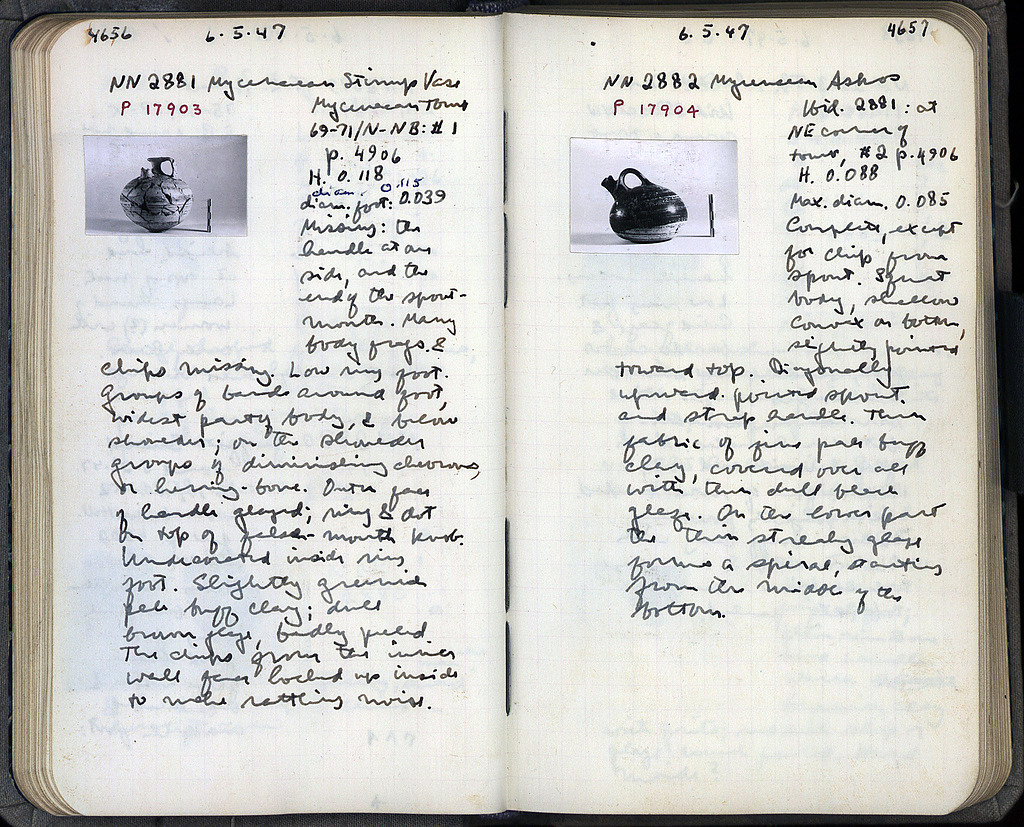 4656 6.5.47
NN 2881 Mycenaean Stirrup Vase
P 17903
Mycenaean Tomb
69-71/N-NB: #1
p. 4906
H. 0.118
diam. 0.115
diam. foot: 0.039
Missing: the
handle at one
side, and the
end of the spout-
mouth. Many
body frags. &
chips missing. Low ring foot.
groups of bands around foot,
widest part of body, & below
shoulder; on the shoulder
groups of diminishing chevrons,
or herring-bone. Outer face
of handle glazed; ring & dot
on top of false-mouth knob.
Undecorated inside ring
foot. Slightly greenish
pale buff clay; dull
brown glaze, badly peeled.
The chips from the inner
wall face locked up inside
to make rattling noise.
6.5.47 4657
NN 2882 Mycenaean Askos
P 17904
Ibid. 2881: at
NE corner of
tomb, #2 p. 4906
H. 0.088
Max. diam. 0.085
Complete, except
for chip from
spout. Squat
body, shallow
convex on bottom,
slightly pointed
toward top. Diagonally
upward-pointed spout.
and strap handle. Thin
fabric of fine pale buff
clay, covered over all
with thin dull black
glaze. On the lower part
the thin streaky glaze
forms a spiral, starting
from the middle of the
bottom.